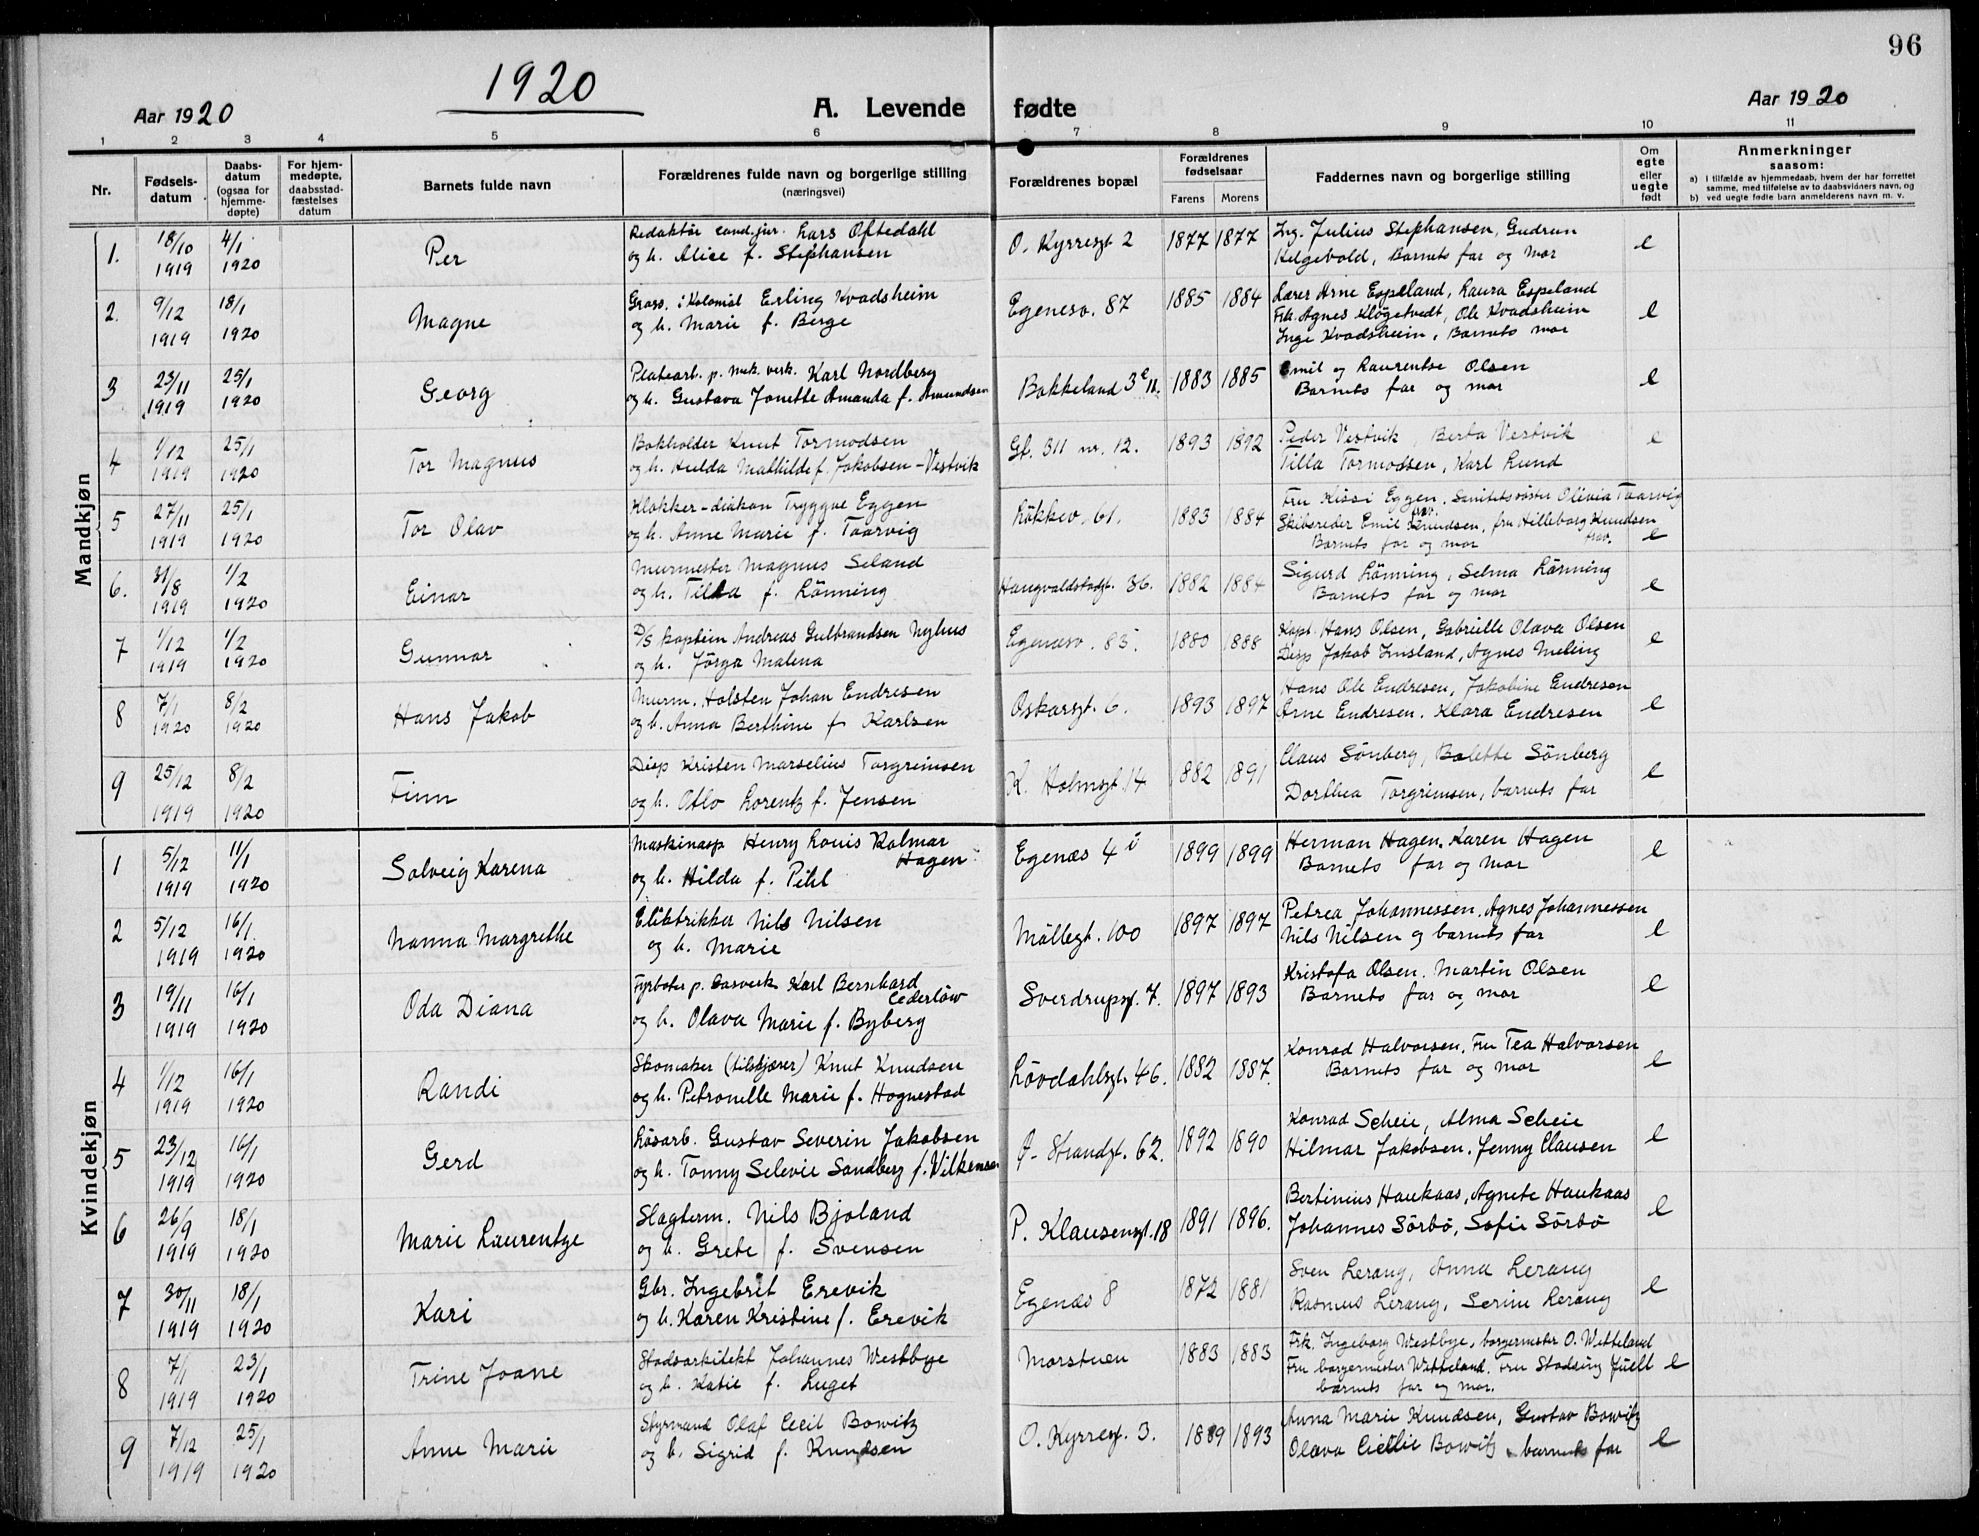 96
1920
Aar 1920 A. Levende fødte Aar 1920
1 2 3 4 5 6 7 8 9 10 11
Nr. Fødsels-datum Daabs-datum (ogsaa for hjemme-døpte) For hjem-medøpte, daabsstad-fæstelses datum Barnets fulde navn Forældrenes fulde navn og borgerlige stilling (næringsvei) Forældrenes bopæl Forældrenes fødselsaar Farens Morens Faddernes navn og borgerlige stilling Om egte eller uegte født Anmerkninger saasom:
a) I tilfælde av hjemmedaab, hvem der har forrettet samme, med tilføielse av to daabsvidners navn, og
b) ved uegte fødte barn anmelderens navn m. v.
Mandkjøn
1. 18/10 1919 4/1 1920 Per Redaktör cand. jur. Lars Oftedahl og h. Alice f. Stephansen O. Kyrresgt 2 1877 1877 Ing. Julius Stephansen, Gudrun Helgebold, Barnets far og mor e
2. 9/12 1919 18/1 1920 Magne Gross. i Kolonial Erling Kvadsheim og h. Marie f. Berge Egenesv. 87 1885 1884 Lærer Arne Espeland, Laura Espeland
Frk. Agnes Kløgetvedt, Ole Kvadsheim
Inge Kvadsheim, Barnets mor e
3 23/11 1919 25/1 1920 Georg Platearb. p. mek. verk. Karl Nordberg og h. Gustava Jonette Amanda f. Amundsen Bakkeland 3e 11. 1883 1885 Emil og Laurentse Olsen
Barnets far og mor e
4 1/12 1919 25/1 1920 Tor Magnus Bokholder Knut Tormodsen og h. Hulda Mathilde f. Jakobsen-Vestvik Gt. 311 nr. 12. 1893 1892 Peder Vestvik, Berta Vestvik
Tilla Tormodsen, Karl Lund e
5 27/11 1919 25/1 1920 Tor Olav Klokker-diakon Tryggve Eggen og h. Anne Marie f. Taarvig Løkkev. 61. 1883 1884 Fru Kissi Eggen. Sanitetssöster Olivia Taarvig
Skibsreder Emil Knudsen, fru Hilleborg Knudsen frav.
Barnets far og mor e
6. 31/8 1919 1/2 1920 Einar Murmester Magnus Seland og h. Tilda f. Lönning Haugvaldstadgt. 36. 1882 1884 Sigurd Lönning, Selma Lönning
Barnets far og mor e
7 1/12 1919 1/2 1920 Gunnar D/S kaptein Andreas Gulbrandsen Nyhus og h. Jörga Malena Egenæsv. 85. 1880 1888 Kapt. Hans Olsen, Gabrielle Olava Olsen
Disp Jakob Imsland, Agnes Meling e
8 7/1 1920 8/2 1920 Hans Jakob Murm. Holsten Johan Endresen og h. Anna Berthine f Karlsen Oskarsgt. 6. 1893 1897 Hans Ole Endresen, Jakobine Endresen
Arne Endresen. Klara Endresen e
9 25/12 1919 8/2 1920 Finn Disp Kristen Marselius Torgrimsen og h. Otlo Lorentz f. Jensen K. Holmsgt. 14 1882 1891 Claus Sönberg, Bolette Sönberg
Dorthea Torgrimsen, barnets far e
Kvindekjøn
1 5/12 1919 11/1 1920 Solveig Karena Maskinasp Henry Louis Kolmar Hagen og h. Hilda f. Pihl Egenæs 4 i 1899 1899 Herman Hagen, Karen Hagen
Barnets far og mor e
2 5/12 1919 16/1 1920 Nanna Margrethe Elektrikker Nils Nilsen og h. Marie Möllegt. 100 1897 1897 Petrea Johannessen, Agnes Johannessen
Nils Nilsen og barnets far e
3 19/11 1919 16/1 1920 Oda Diana Fyrböter p. Gasverk Karl Bernhard Cederlöw og h. Olava Marie f. Byberg Sverdrupsgt. 7. 1897 1893 Kristofa Olsen. Martin Olsen
Barnets far og mor e
4 1/12 1919 16/1 1920 Randi Skomaker (tilskjærer) Knut Knudsen og h. Petronelle Marie f. Hognestad Lövdahlsgt. 46. 1882 1887. Konrad Halvorsen. Fru Tea Halvorsen
Barnets far og mor e
5 23/12 1919 16/1 1920 Gerd Lösarb. Gustav Severin Jakobsen og h. Tonny Selevie Sandberg f. Vilkensen Ø. Strandgt. 62. 1892 1890 Konrad Scheie, Alma Scheie
Hilmar Jakobsen. Jenny Clausen e
6 26/9 1919 18/1 1920 Marie Laurentze Slagterm. Nils Bjoland og h. Grete f. Svensen P. Klausensgt. 18 1891 1896. Bertinius Haukaas, Agnete Haukaas
Johannes Sörbö, Sofie Sörbö e
7 30/11 1919 18/1 1920 Kari Gbr. Ingebrit Erevik og h. Karen Kristine f. Erevik Egenæs 8 1872 1881 Sven Lerang, Anna Lerang
Rasmus Lerang, Serine Lerang e
8 7/1 1919 23/1 1920 Trine Joane Stadsarkitekt Johannes Westbye og h. Katie f. Luget Morstuen 1883 1883 Frk. Ingeborg Westbye, borgermester O. Wetteland
Fru borgermester Wetteland. Fru Stadsing Juell
barnets far og mor. e
9 7/12 1919 25/1 1920 Anne Marie Styrmand Olaf Cecil Bowitz og h. Sigrid f. Knudsen O. Kyrresgt. 3. 1889 1893 Anna Marie Knudsen, Gustav Bowitz
Olava Cicilie Bowitz barnets far e